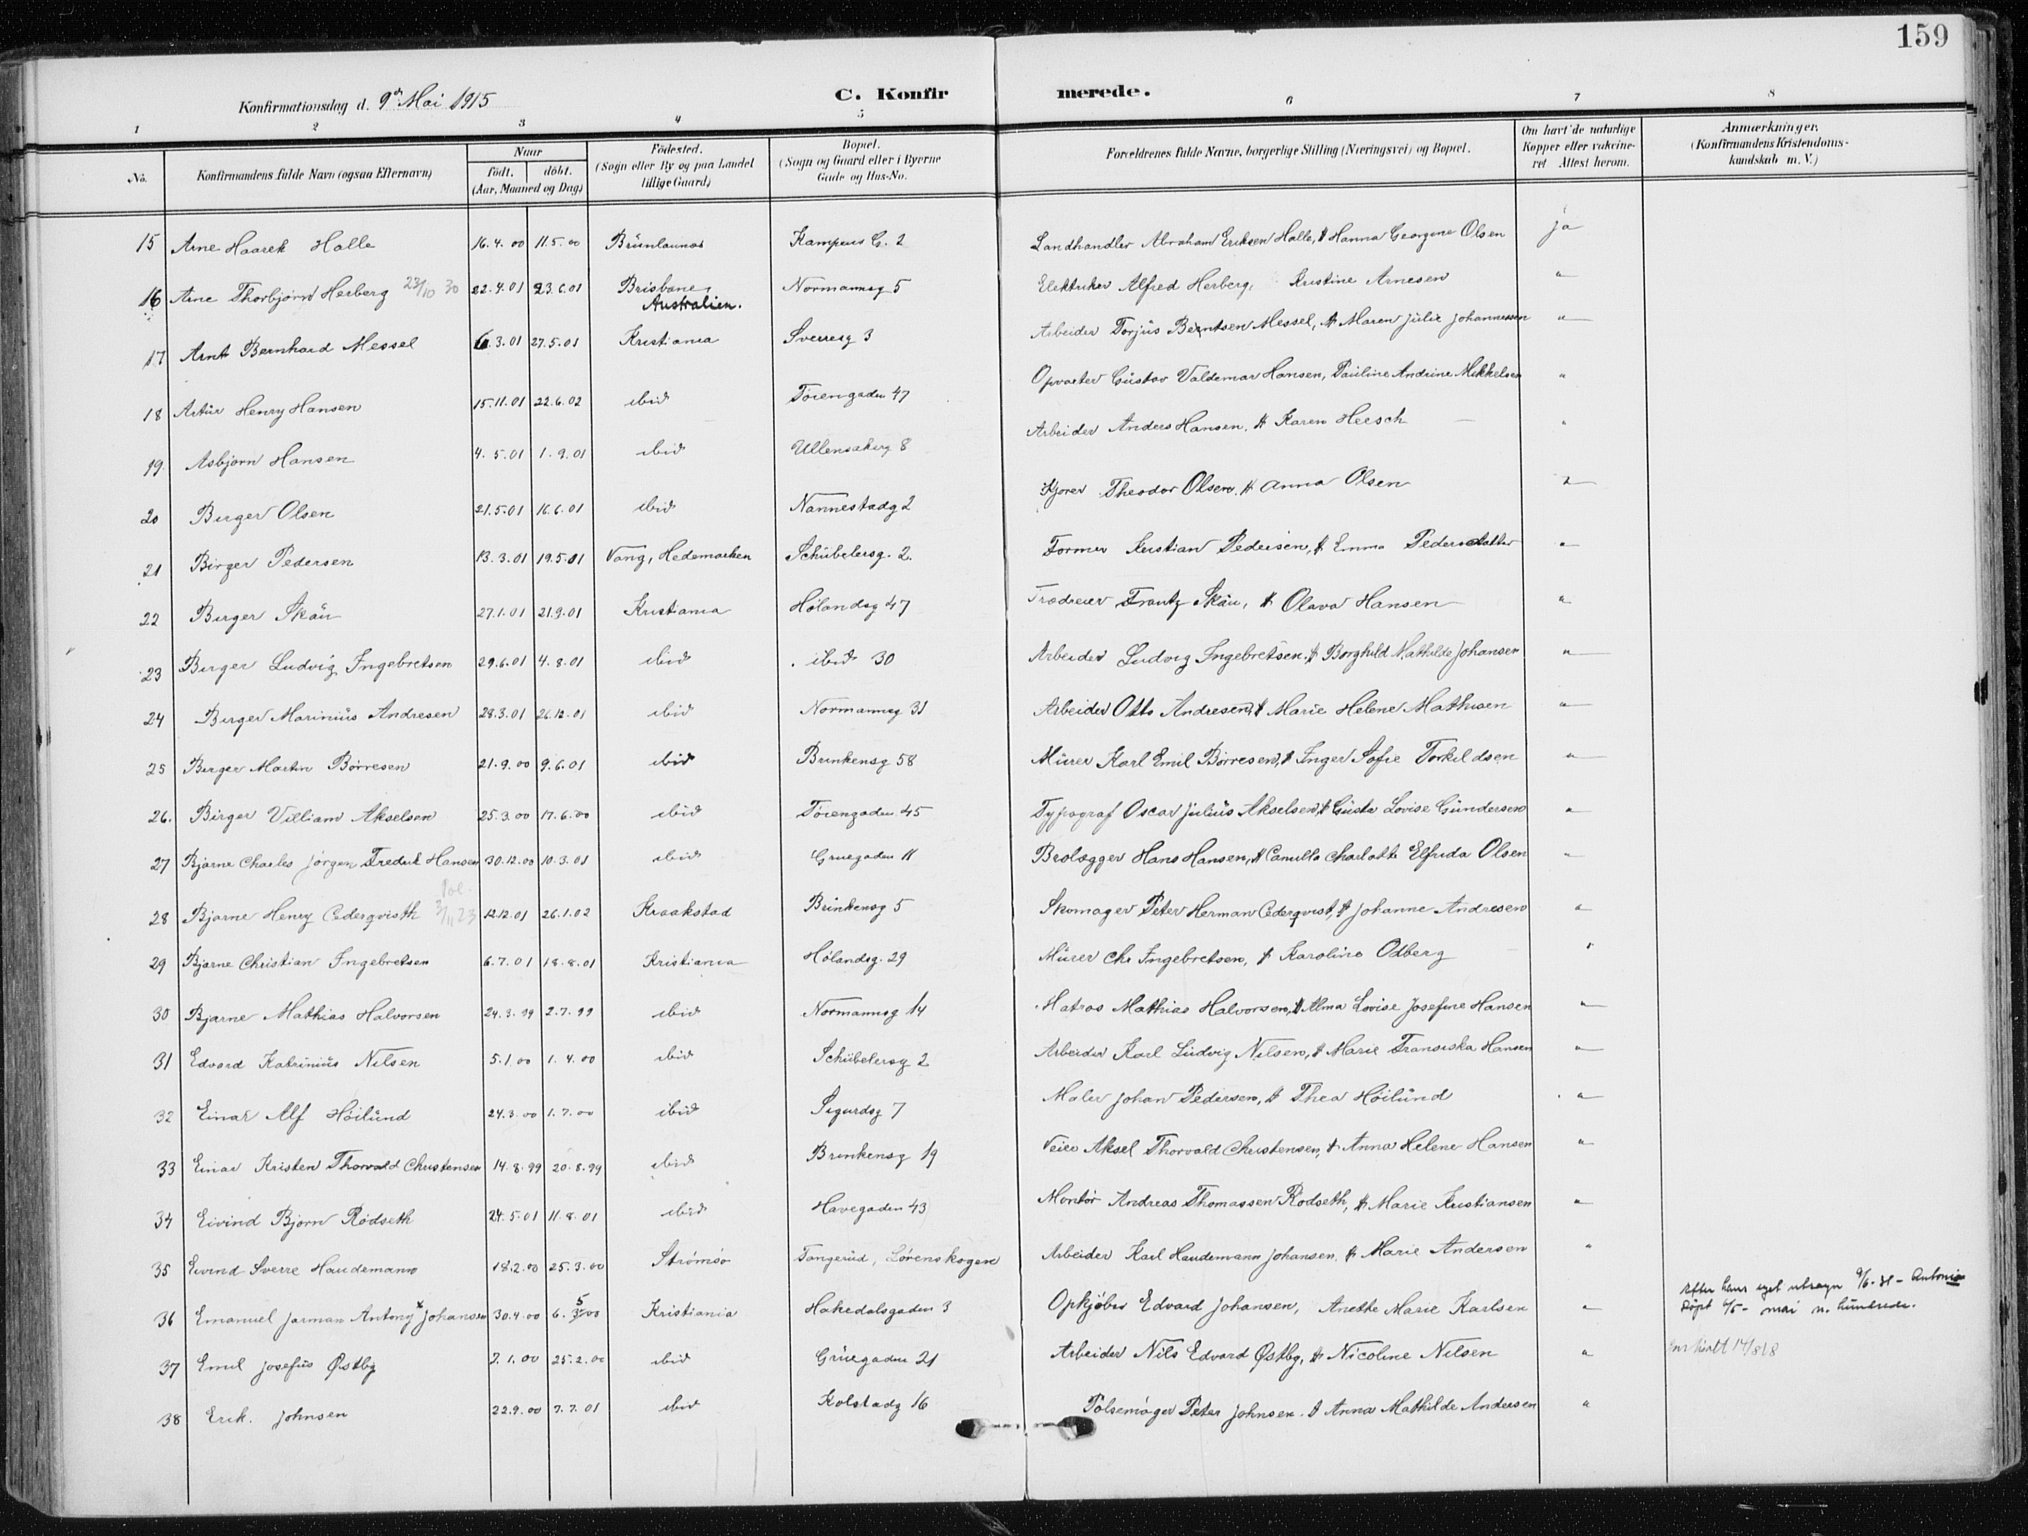 159
Konfirmationsdag d. 9de Mai 1915
C. Konfirmerede.
1 2 3 4 5 6 7 8
No. | Konfirmandens fulde Navn (ogsaa Efternavn) | Naar født. døbt. (Aar, Maaned og Dag) | Fødested. (Sogn eller By og paa Landet tillige Gaard) | Bopæl. (Sogn og Gaard eller i Byerne Gade og Hus-No. | Forældrenes fulde Navne, borgerlige Stilling (Næringsvei) og Bopæl. | Om havt de naturlige Kopper eller vakcineret. Attest herom. | Anmærkninger. (Konfirmandens Kristendomskundskab m. V.)
15 Arne Haarek Halle 16.4.00 11.5.00 Brunlanæs Kampens G. 2 Landhandler Abraham Eriksen Halle, & Hanna Georgine Olsen ja
16 Arne Thorbjørn Herberg 23/10 30 22.4.01 23.6.01 Brisbane, Australien. Normannsg 5 Elektriker Alfred Herberg, Kristine Arnesen "
17 Arnt Bernhard Messel 6.3.01 27.5.01 Kristiania Sverresg 3 Arbeider Torjus Berntsen Messel, & Maren Julie Johannessen "
18 Artur Henry Hansen 15.11.01 22.6.02 ibid Tøiengaden 47 Opvarter Gustav Valdemar Hansen, Pauline Andrine Mikkelsen "
19. Asbjørn Hansen 4.5.01 1.9.01 ibid Ullensakerg 8 Arbeider Anders Hansen, & Karen Heesch "
20 Birger Olsen 21.5.01 16.6.01 ibid Nannestadg 2 Kjører Theodor Olsen, & Anna Olsen "
21 Birger Pedersen 13.3.01 19.5.01 Vang, Hedemarken Schübelersg. 2. Former Kristian Pedersen, & Emma Pedersdatter "
22 Birger Skau 27.1.01 21.9.01 Kristiania Hølandsg 47 Trædreier Frantz Skau, & Olava Hansen "
23 Birger Ludvig Ingebretsen 29.6.01 4.8.01 ibid ibid 30 Arbeider Ludvig Ingebretsen, & Borghild Mathilde Johansen "
24 Birger Marinius Andresen 28.3.01 26.12.01 ibid Normannsg 31 Arbeider Otto Andresen, & Marie Helene Mathisen "
25 Birger Martin Børresen 21.9.00 9.6.01 ibid Brinkensg 58 Murer Karl Emil Børresen, & Inger Sofie Torkildsen "
26. Birger Villiam Akselsen 25.3.00 17.6.00 ibid Tøiengaden 45 Typograf Oscar Julius Akselsen, & Gusta Lovise Gundersen "
27 Bjarne Charles Jørgen Fredrik Hansen 30.12.00 10.3.01 ibid Gruegaden 11 Brolægger Hans Hansen, & Camilla Charlotte Elfrida Olsen "
28 Bjarne Henry Cederqvisth 12.12.01 26.1.02 Kraakstad Brinkensg 5 Skomager Peter Herman Cederqvist, & Johanne Andresen "
29 Bjarne Christian Ingebretsen 6.7.01 18.8.01 Kristiania Hølandsg. 29 Murer Chr Ingebretsen, & Karoline Odberg "
30 Bjarne Mathias Halvorsen 24.3.99 2.7.99 ibid Normannsg 14 Matros Mathias Halvorsen, & Alma Lovise Josefine Hansen "
31 Edvard Katrinius Nilsen 5.1.00 1.4.00 ibid Schübelersg 2 Arbeider Karl Ludvig Nilsen, & Marie Fransiska Hansen "
32 Einar Alf Høilund 24.3.00 1.7.00 ibid Sigurdsg 7 Maler Johan Pedersen, & Thea Høilund "
33 Einar Kristen Thorvald Christensen 14.8.99 20.8.99 ibid Brinkensg 19 Veier Aksel Thorvald Christensen, & Anna Helene Hansen "
34 Eivind Bjørn Rødseth 24.5.01 11.8.01 ibid Havegaden 43 Montør Andreas Thomassen Rødseth, & Marie Kristiansen "
35 Eivind Sverre Haudemann 18.2.00 25.3.00 Strømsø Tangerud, Lørenskogen Arbeider Karl Haudemann Johansen, & Marie Andersen "
36 Emanuel Jarman Antony* Johansen 30.4.00 6.5.00 Kristiania Hakedalsgaden 3 Opkjøber Edvard Johansen, Anette Marie Karlsen " Efter hans eget utsagn 9/6-31 - Antonio Døpt 6/5 - mai n. hundrede.
37 Emil Josefus Østby 7.1.00 25.2.00 ibid Gruegaden 21 Arbeider Nils Edvard Østby, & Nicoline Nilsen " 14/8 18
38 Erik Johnsen 22.9.00 7.7.01 ibid Kolstadg 16 Pølsemager Peter Johnsen & Anna Mathilde Andersen "